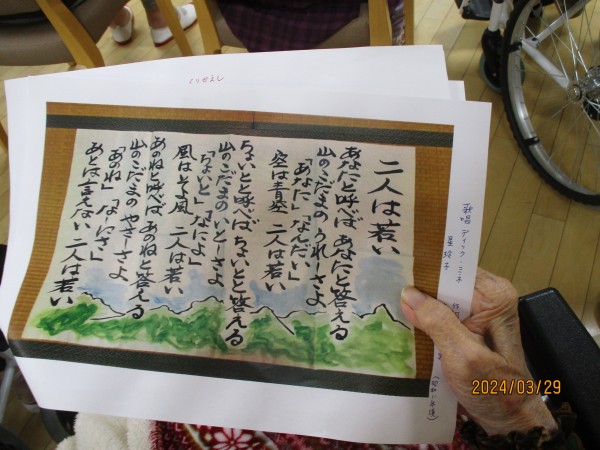 くりかえし
二人は若い
あなたと呼べば あなたと答える
山のこだまの うれしーさよ
「あなた」「なんだい」
空は青空 二人は若い
ちょいと呼べば ちょいとと答える
山のこだまの いとしーさよ
「ちょいと」「なによ」
風はそよ風 二人は若い
あのねと呼べば あのねと答える
山のこだまの やさーさよ
「あのね」「なにさ」
あとは言えない 二人は若い
歌唱 ディック・ミネ
星玲子
2024/03/29